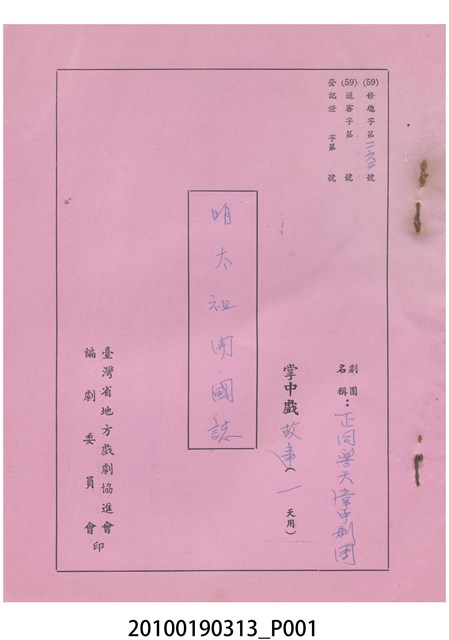 (59)修聰字第二六二號
(59)送審字第　　號
登記證　字第　　號
劇團名稱：正同樂天掌中劇團
掌中戲故事(一天用)
明太祖開國誌
臺灣省地方戲劇協進會
編劇委員會印
20100190313_P001